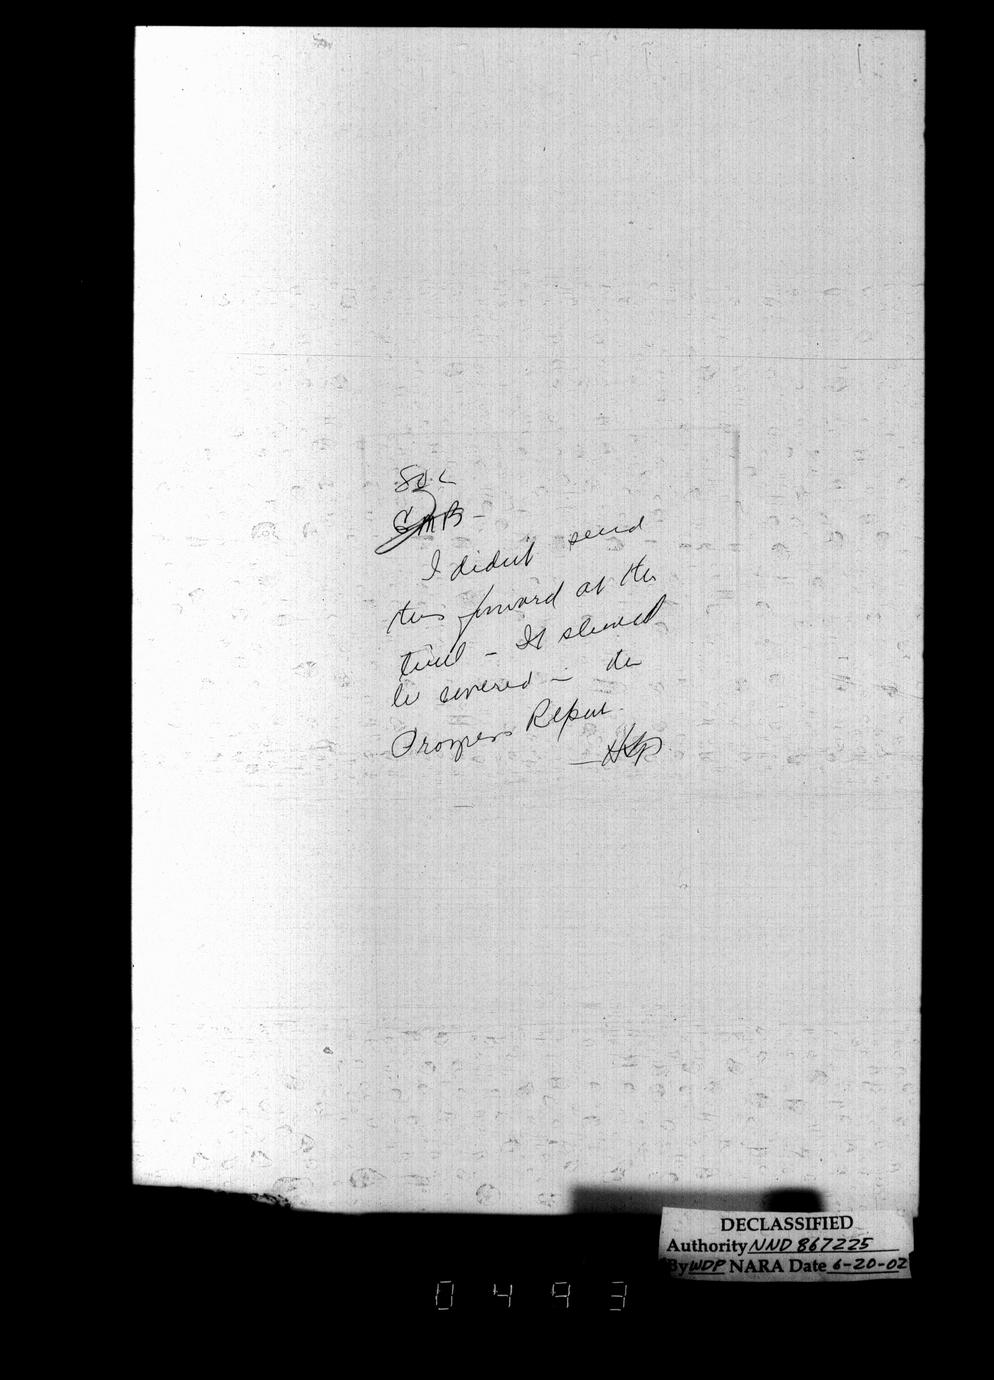 GMB -
I didn't send
this forward at the
time - It should
be covered in the
Progress Report.
DECLASSIFIED
Authority NND 867225
By WDP NARA Date 6-20-02
0493